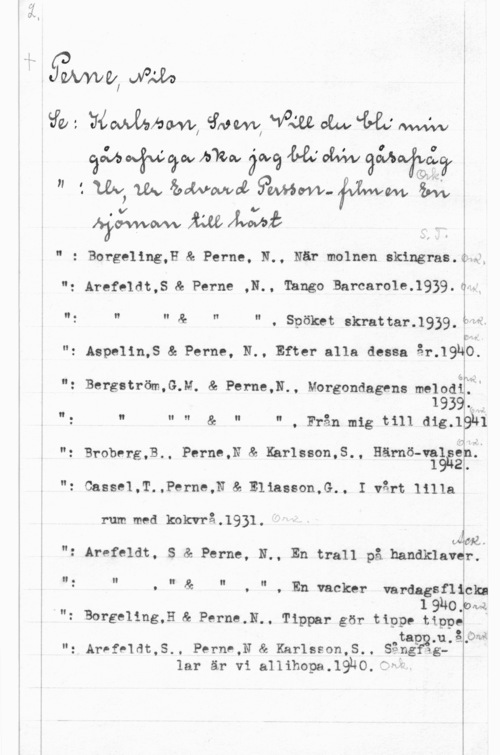 2.
+
Perne, Nils
Se: Karlsson, Sven, Vill du bli min
gåsafriga ska jag bli din gåsafråg
Ork.
" : Ur, ur Edvard Persson-filmen En
sjöman till häst
S.J.
" : Borgeling,H & Perne, N., När molnen skingras. Ork.
": Arefeldt,S & Perne ,N., Tango Barcarole.1939. Ork.
": " " & " " , Spöket skrattar.1939. Ork.
Ork.
": Aspelin,S & Perne, N., Efter alla dessa år.1940.
Ork.
": Bergström,G.M. & Perne,N., Morgondagens melodi.
1939. Ork.
": " " " & " " , Från mig till dig.1941
Ork.
": Broberg,B., Perne,N & Karlsson,S., Härnö-valsen.
1942.
": Cassel,T.,Perne,N & Eliasson,G.. I vårt lilla
rum med kokvrå.1931. Ork.
Ack.
": Arefeldt, S & Perne, N., En trall på handklaver.
": " , " & " , " , En vacker vardagsflicka
1940. Ork.
": Borgeling,H & Perne.N.. Tippar gör tippe tippe
tapp.u.å. Ork.
": Arefeldt,S., Perne,N & Karlsson,S.. Sångfåg-
lar är vi allihopa.1940. Ork.